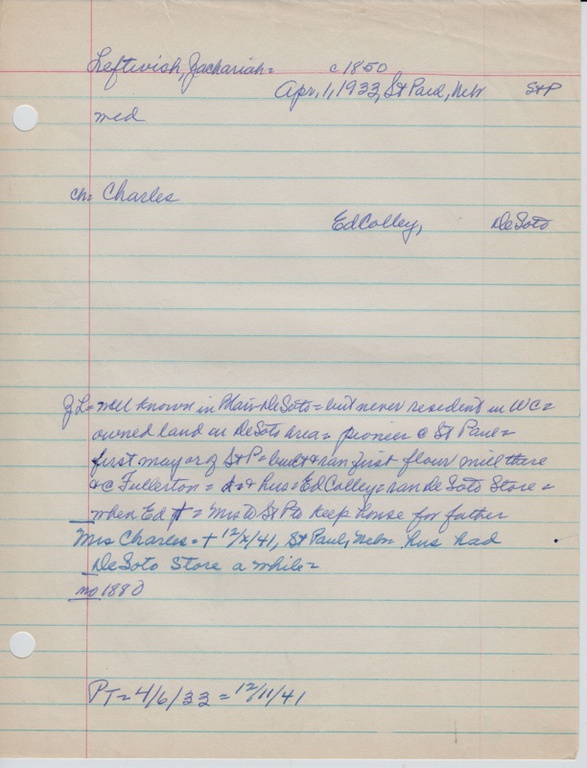 Leftwich, Zachariah = c 1850
Apr, 1, 1933, St Paul, Nebr St P
med
ch = Charles
Ed Colley, DeSoto
Z L = well known in Blair - DeSoto = but never resident in WC =
owned land in DeSoto area = pioneer @ St Paul =
first mayor of St P = built & ran first flour mill there
& @ Fullerton = d & hus = Ed Colley = ran DeSoto Store =
when Ed † = Mrs to St P to keep house for father
Mrs Charles = † 12/x/41, St Paul, Nebr = hus had
DeSoto Store a while =
no 1880
PT = 4/6/33 = 12/11/41